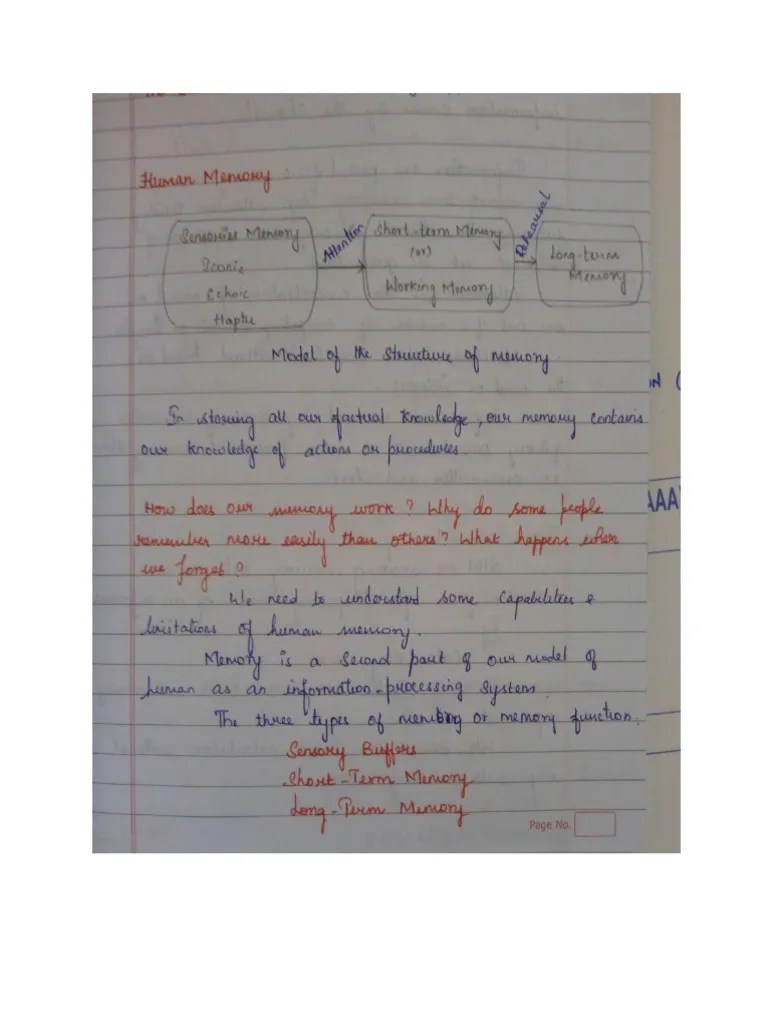 Human Memory
Sensories Memory
Iconic
Echoic
Haptic
Attention
Short-term Memory
(or)
Working Memory
Rehearsal
Long-term
Memory
Model of the structure of memory.
In storing all our factual knowledge, our memory contains
our knowledge of actions or procedures.
How does our memory work? Why do some people
remember more easily than others? What happens when
we forget?
We need to understand some capabilities &
limitations of human memory.
Memory is a second part of our model of
human as an information-processing system.
The three types of memory or memory function.
Sensory Buffers
Short-Term Memory
Long-Term Memory
Page No.